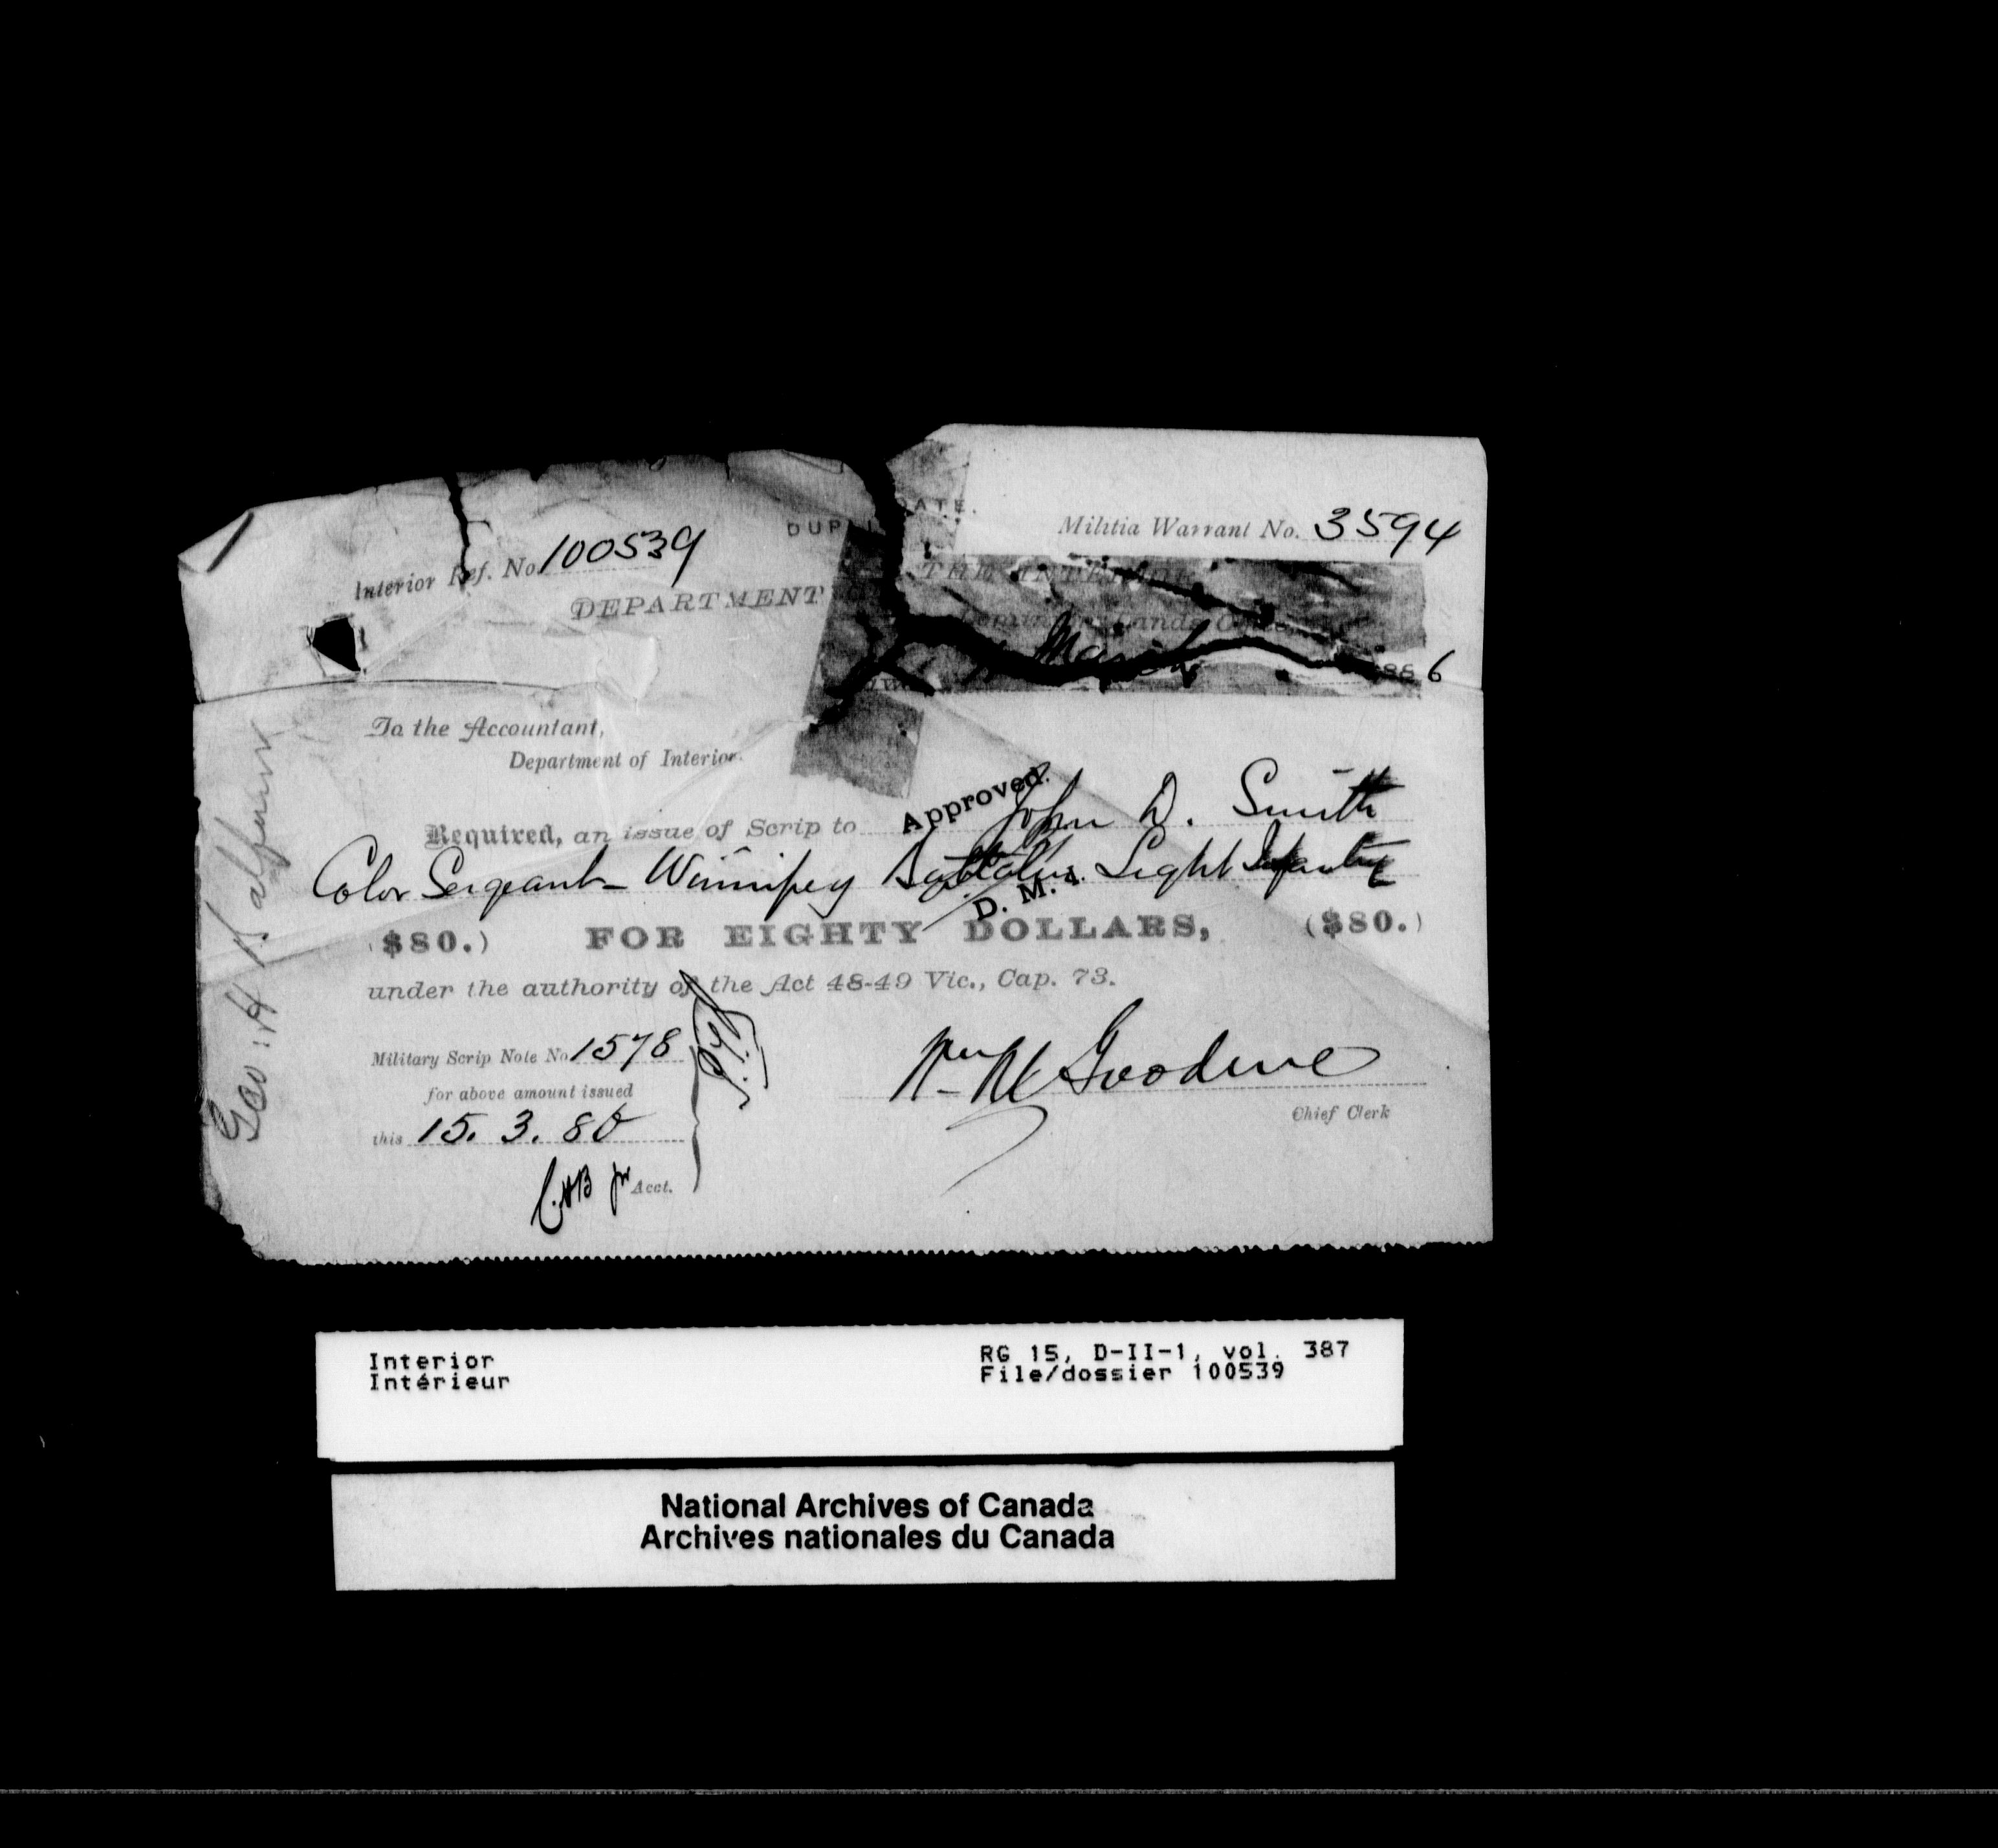 DUPLICATE.
Interior Ref. No. 100539
Militia Warrant No. 3594
DEPARTMENT OF THE INTERIOR
Dominion Lands Office
March 1886
To the Accountant,
Department of Interior.
Approved.
Required, an issue of Scrip to John D. Smith
Color Sergeant - Winnipeg Battalion Light Infantry
D. M. I.
($80.) FOR EIGHTY DOLLARS, ($80.)
under the authority of the Act 48-49 Vic., Cap. 73.
Military Scrip Note No. 1578
for above amount issued
this 15. 3. 86
Acct.
Wm M Goodeve
Chief Clerk
Interior
Intérieur
RG 15, D-II-1, vol. 387
File/dossier 100539
National Archives of Canada
Archives nationales du Canada